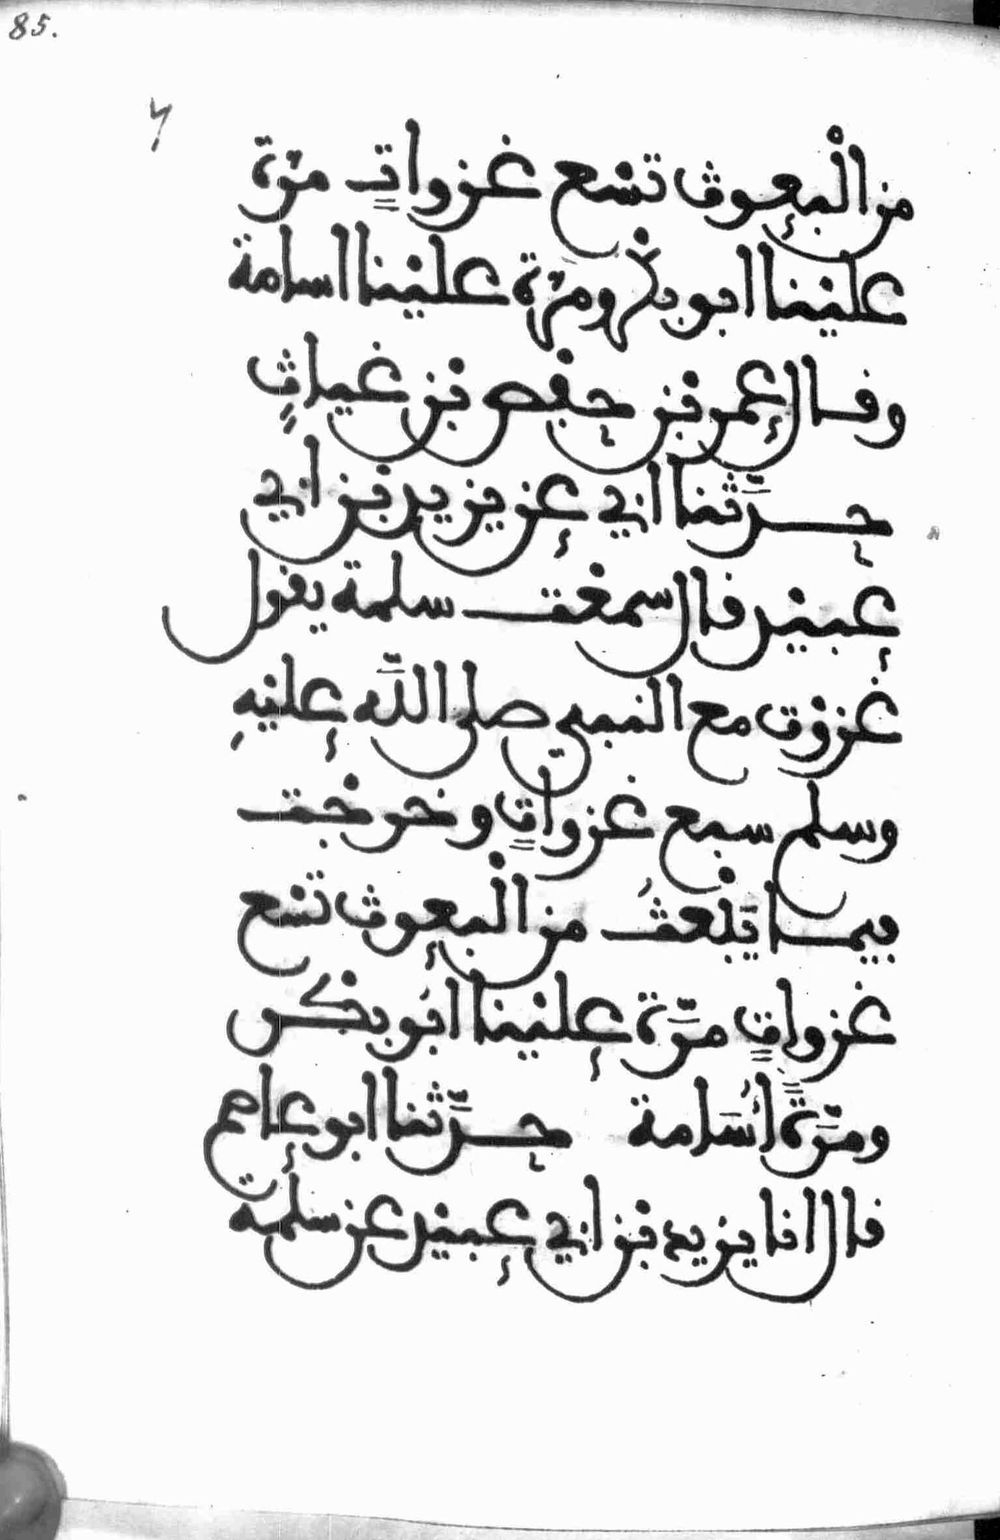 85.
من الْبعوث تسْع غزواتٍ مرّة
عليْنا ابو بكْر ومرّة عليْنا اسامة
وقال عمر بْن حفْص بْن غياثٍ
حدَّثنا ابي عن يزيد بْن ابي
عبيْد قال سمعْت سلمة يقول
غزوْت مع النبي صلى اللَّه عليْهِ
وسلم سبع غزواتٍ وخرجْت
فيما يَبْعثُ من الْبعوث تسْع
غزواتٍ مرَّة عليْنا أبُو بكْر
ومرَّةً أُسَامة حدَّثنا ابو عاصم
قال انا يزيد بْن ابي عبيْد عن سلمة